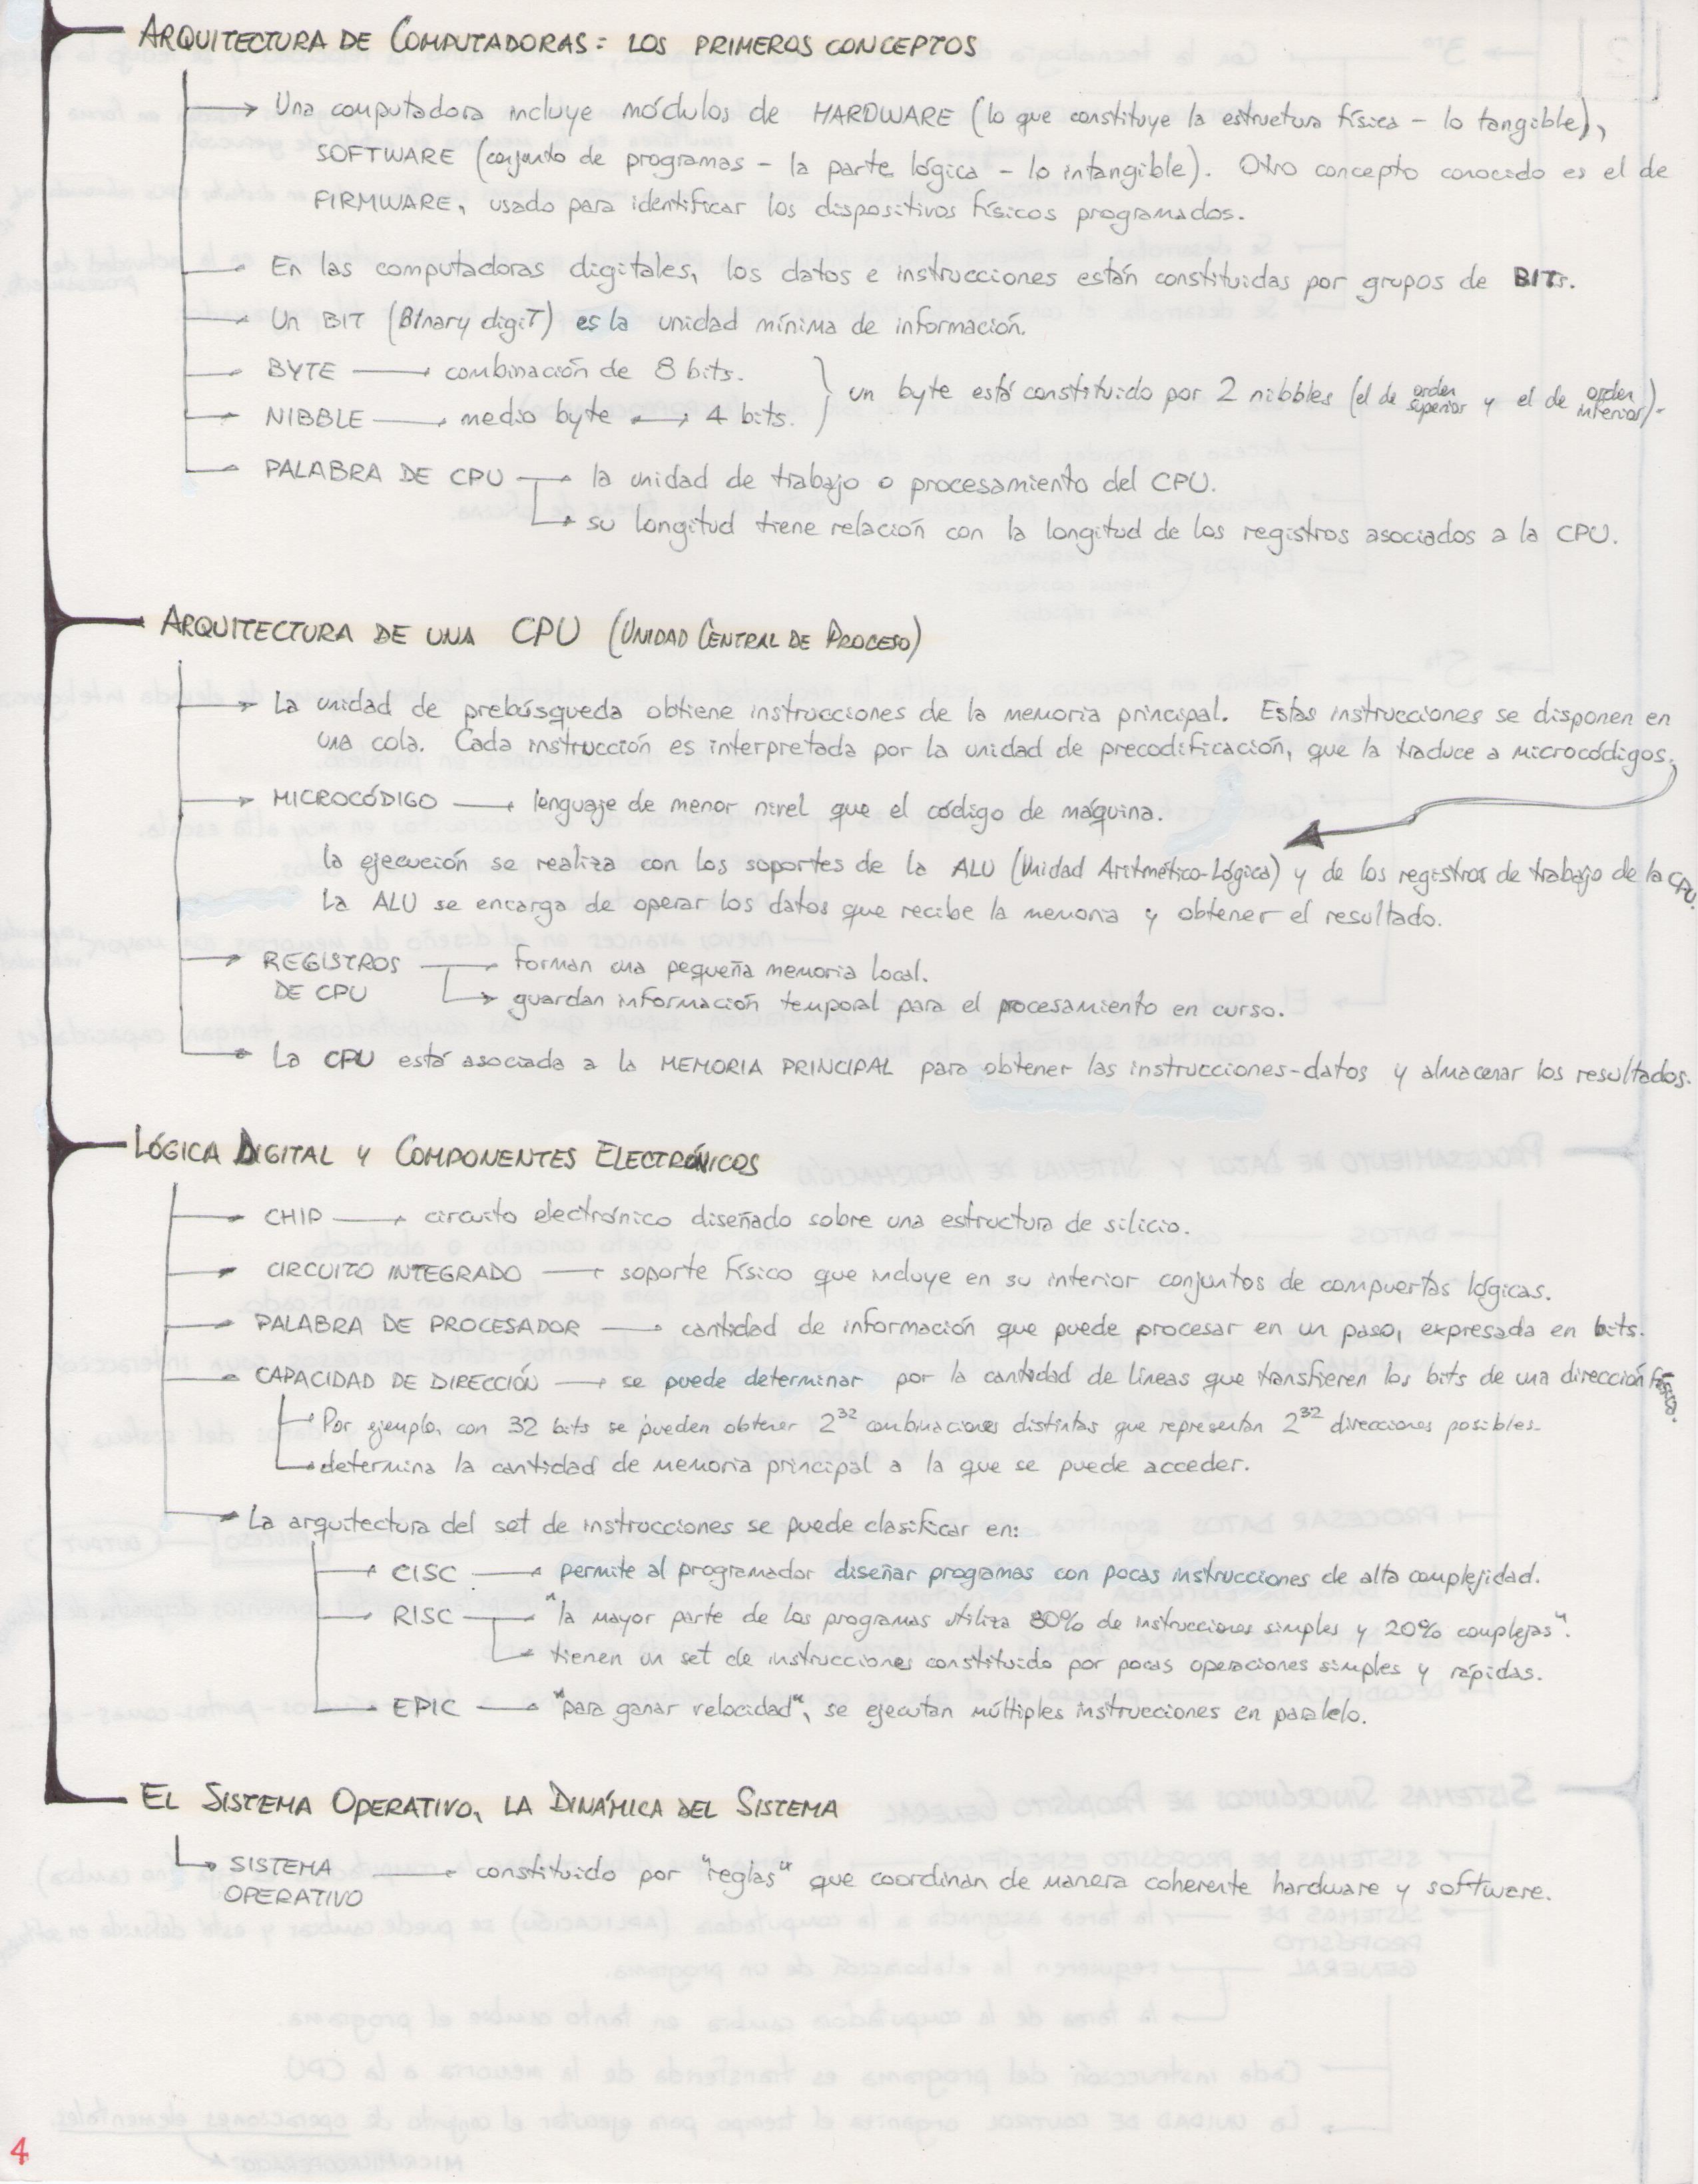 ARQUITECTURA DE COMPUTADORAS: LOS PRIMEROS CONCEPTOS
Una computadora incluye módulos de HARDWARE (lo que constituye la estructura física - lo tangible),
SOFTWARE (conjunto de programas - la parte lógica - lo intangible). Otro concepto conocido es el de
FIRMWARE, usado para identificar los dispositivos físicos programados.
En las computadoras digitales, los datos e instrucciones están constituidas por grupos de BITs.
Un BIT (BInary digiT) es la unidad mínima de información.
BYTE → combinación de 8 bits.
NIBBLE → medio byte → 4 bits.
un byte está constituido por 2 nibbles (el de orden superior y el de orden inferior).
PALABRA DE CPU → la unidad de trabajo o procesamiento del CPU.
→ su longitud tiene relación con la longitud de los registros asociados a la CPU.
ARQUITECTURA DE UNA CPU (UNIDAD CENTRAL DE PROCESO)
La unidad de prebúsqueda obtiene instrucciones de la memoria principal. Estas instrucciones se disponen en
una cola. Cada instrucción es interpretada por la unidad de precodificación, que la traduce a microcódigos.
MICROCÓDIGO → lenguaje de menor nivel que el código de máquina.
la ejecución se realiza con los soportes de la ALU (Unidad Aritmético-Lógica) y de los registros de trabajo de la CPU.
La ALU se encarga de operar los datos que recibe la memoria y obtener el resultado.
REGISTROS DE CPU → forman una pequeña memoria local.
→ guardan información temporal para el procesamiento en curso.
La CPU está asociada a la MEMORIA PRINCIPAL para obtener las instrucciones-datos y almacenar los resultados.
LÓGICA DIGITAL Y COMPONENTES ELECTRÓNICOS
CHIP → circuito electrónico diseñado sobre una estructura de silicio.
CIRCUITO INTEGRADO → soporte físico que incluye en su interior conjuntos de compuertas lógicas.
PALABRA DE PROCESADOR → cantidad de información que puede procesar en un paso, expresada en bits.
CAPACIDAD DE DIRECCIÓN → se puede determinar por la cantidad de líneas que transfieren los bits de una dirección física.
Por ejemplo, con 32 bits se pueden obtener 2³² combinaciones distintas que representan 2³² direcciones posibles.
determina la cantidad de memoria principal a la que se puede acceder.
La arquitectura del set de instrucciones se puede clasificar en:
CISC → permite al programador diseñar programas con pocas instrucciones de alta complejidad.
RISC → "la mayor parte de los programas utiliza 80% de instrucciones simples y 20% complejas".
→ tienen un set de instrucciones constituido por pocas operaciones simples y rápidas.
EPIC → "para ganar velocidad", se ejecutan múltiples instrucciones en paralelo.
EL SISTEMA OPERATIVO, LA DINÁMICA DEL SISTEMA
SISTEMA OPERATIVO → constituido por "reglas" que coordinan de manera coherente hardware y software.
4